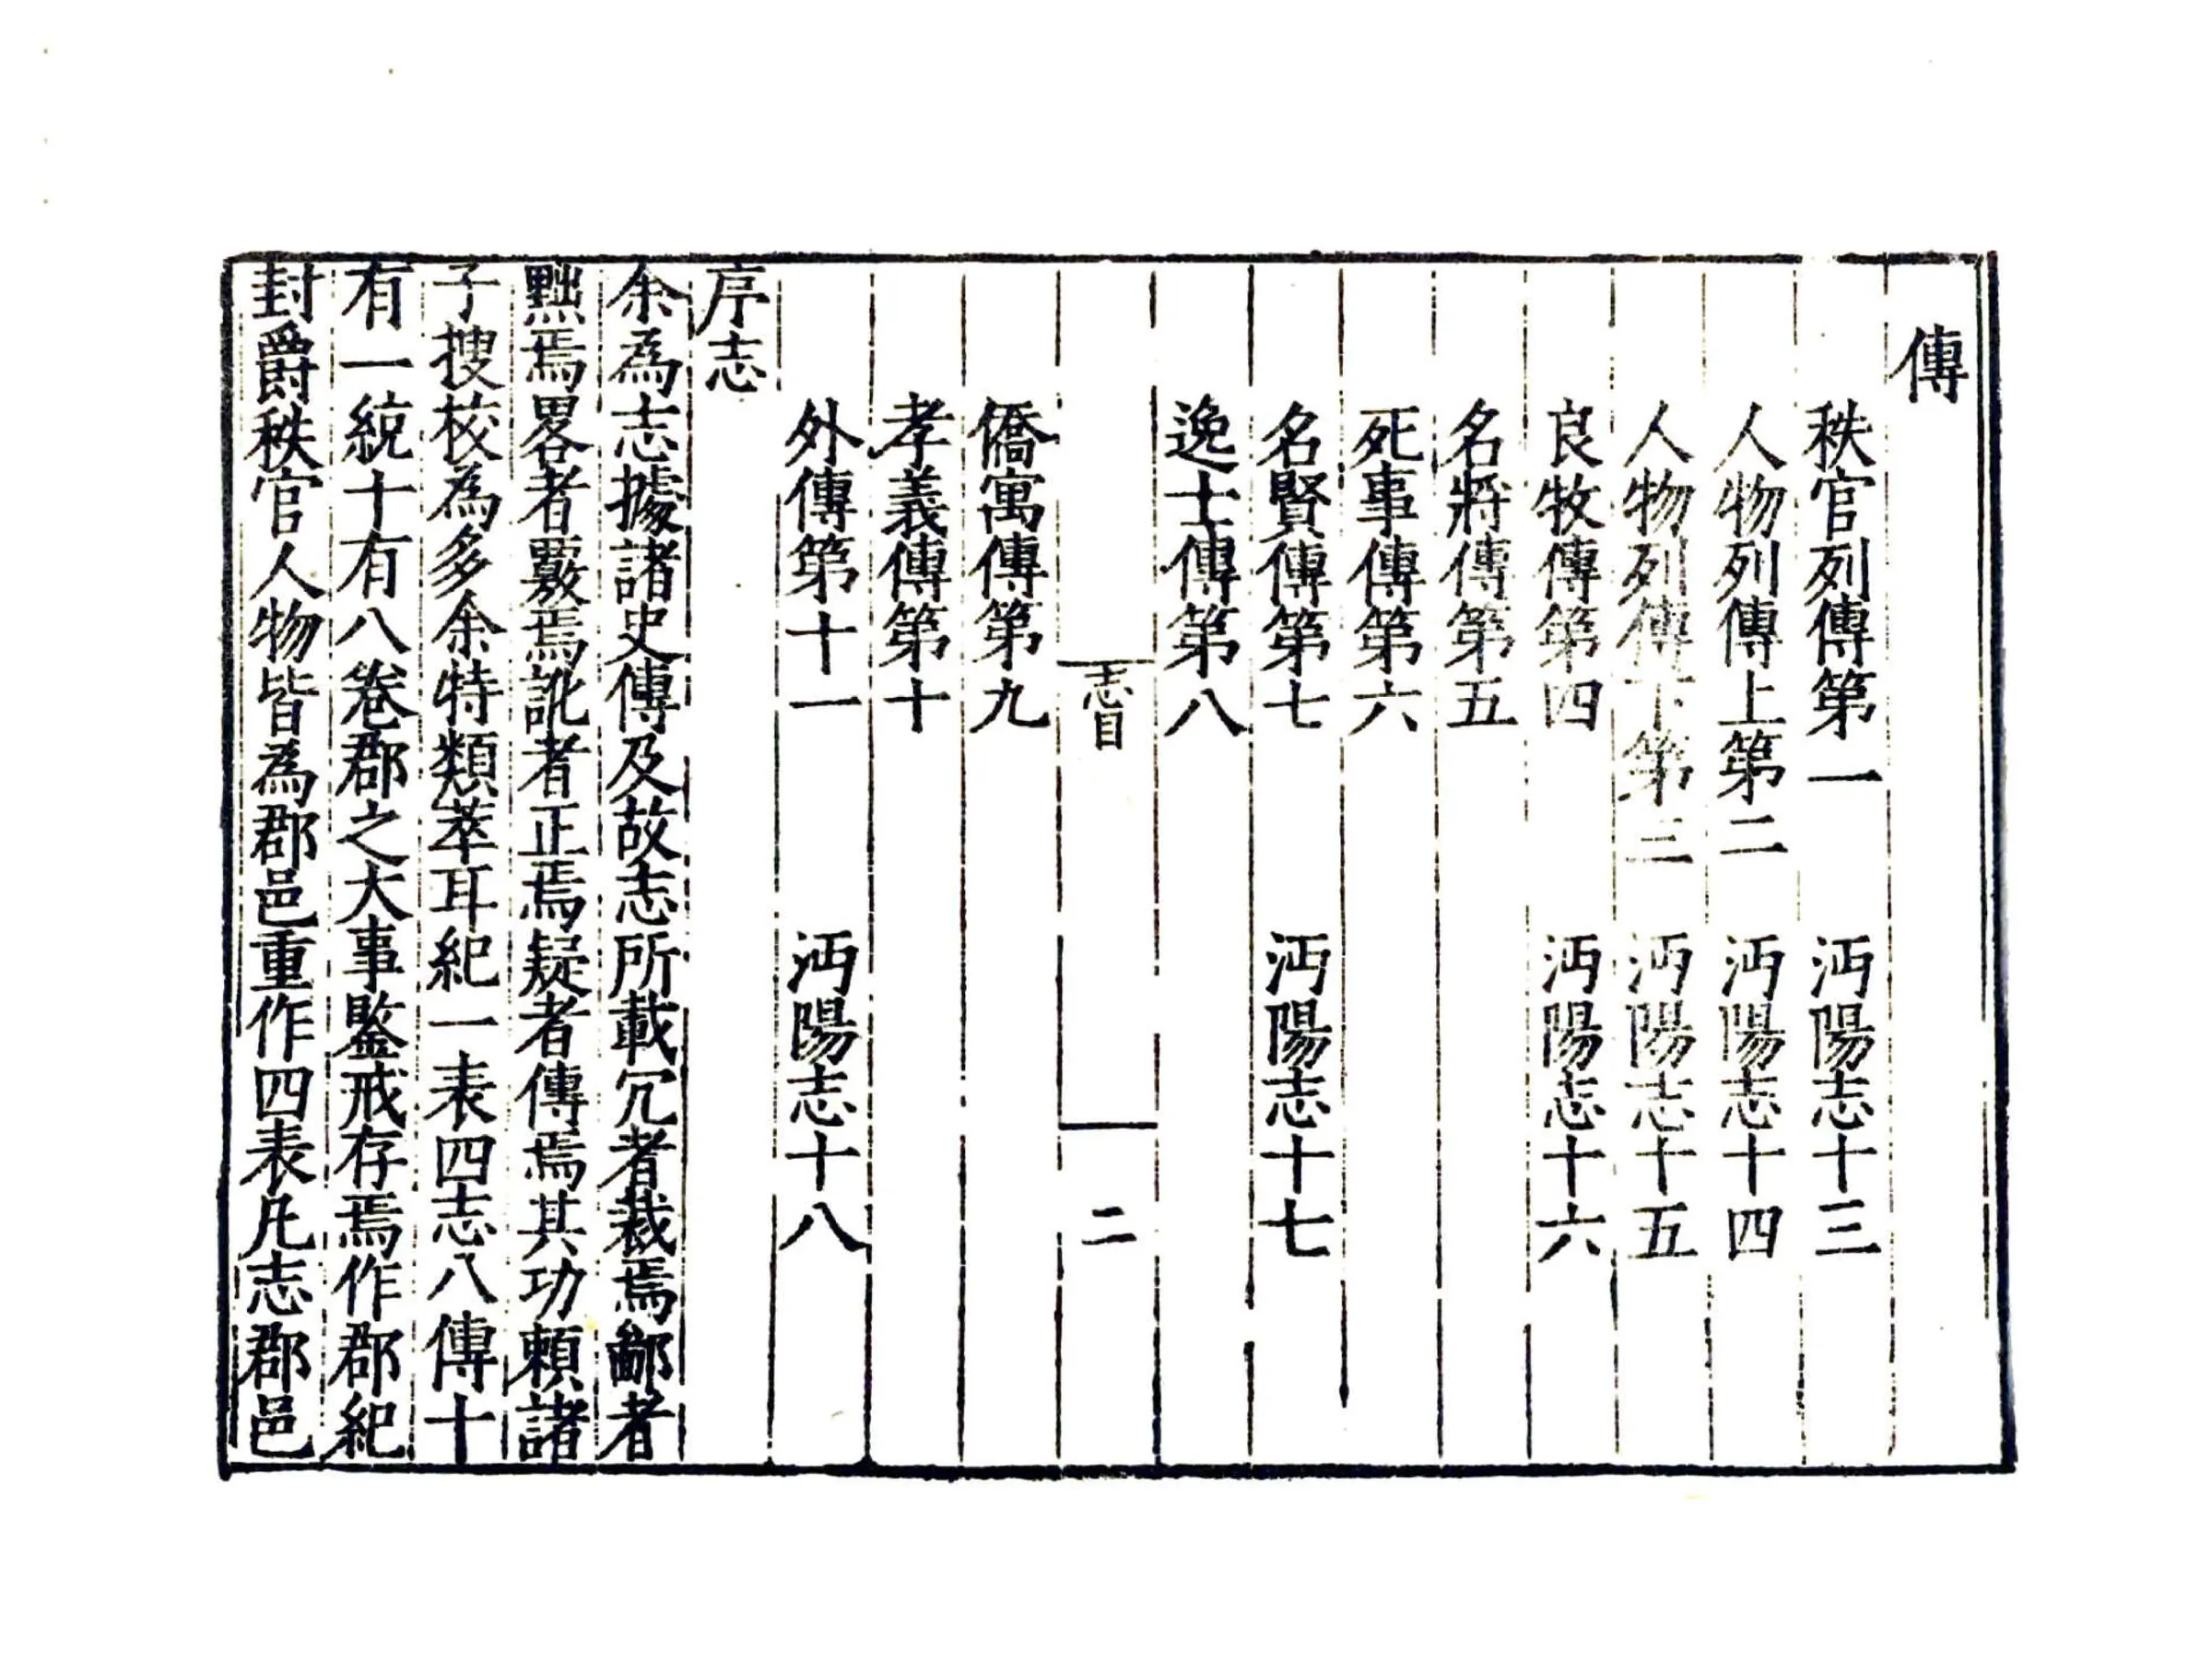 傳
秩官列傳第一 沔陽志十三
人物列傳上第二 沔陽志十四
人物列傳下第三 沔陽志十五
良牧傳第四 沔陽志十六
名將傳第五
死事傳第六
名賢傳第七 沔陽志十七
逸士傳第八
志目 二
僑寓傳第九
孝義傳第十
外傳第十一 沔陽志十八
序志
余為志據諸史傳及故志所載冗者裁焉鄙者
黜焉畧者覈焉訛者正焉疑者傳焉其功頼諸
子搜校為多余特類萃耳紀一表四志八傳十
有一統十有八卷郡之大事鑒戒存焉作郡紀
封爵秩官人物皆為郡邑重作四表凡志郡邑